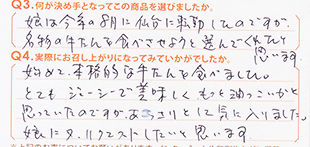 Q3.何が決め手となってこの商品を選びましたか。
娘は今年の8月に仙台に転勤したのですが、
名物の牛たんを食べさせようと選んでくれたと
思います。
Q4.実際にお召し上がりになってみていかがでしたか。
始めて、本格的な牛たんを食べました。
とてもジューシーで美味しく もっと油っこいかと
思っていたのですが、あっさりとして気に入りました。
娘にリクエストしたいと思います